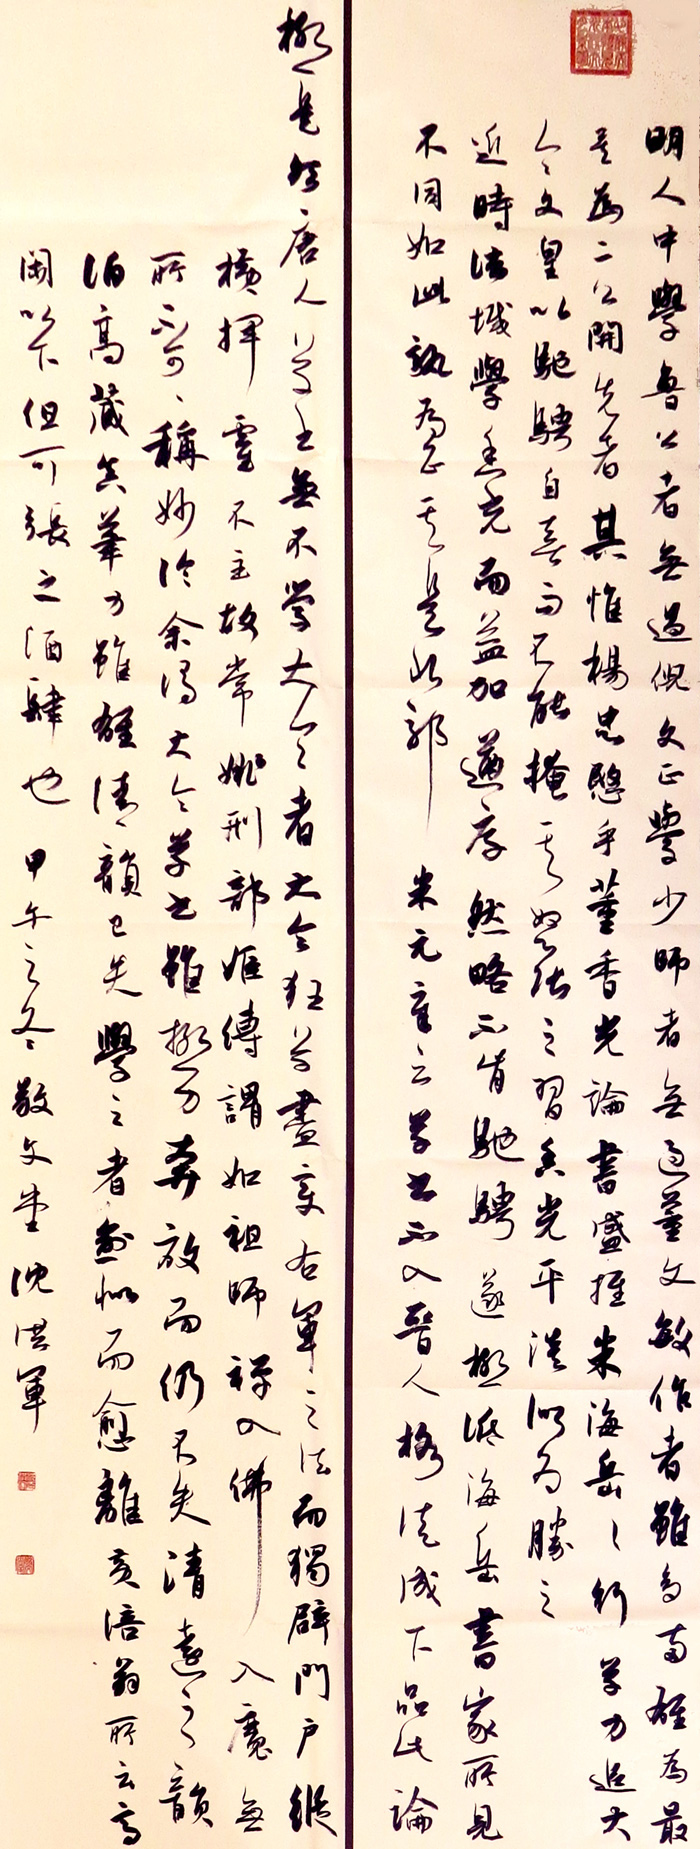 明人中學魯公者無過倪文正學少師者無過董文敏作者雖多两雄為最
為二公開先者其惟楊忠愍乎董香光論書盛推米海岳々行草力追大
令文皇以馳騁自喜而不能掩其怒張之習香光平淡似為勝之
近時法城學香光而益加遒厚然略不肯馳騁遂極詆海岳書家所見
不同如此孰為正其是非邪 米元章云草書不入晉人格徒成下品此論
極是然唐人草書無不學大令者大令狂草盡變右軍之法而獨辟門户縱
橫揮霍不主故常姚刑部姬傳謂如祖師禪入佛入魔無
所不可可稱妙論余謂大令草書雖極力奔放而仍不失清遠之韻
伯高藏真筆力雖雄清韻已失學之者愈似而愈離黄涪翁所云高
閑以下但可張之酒肆也 甲午之冬敬文堂沈洪軍